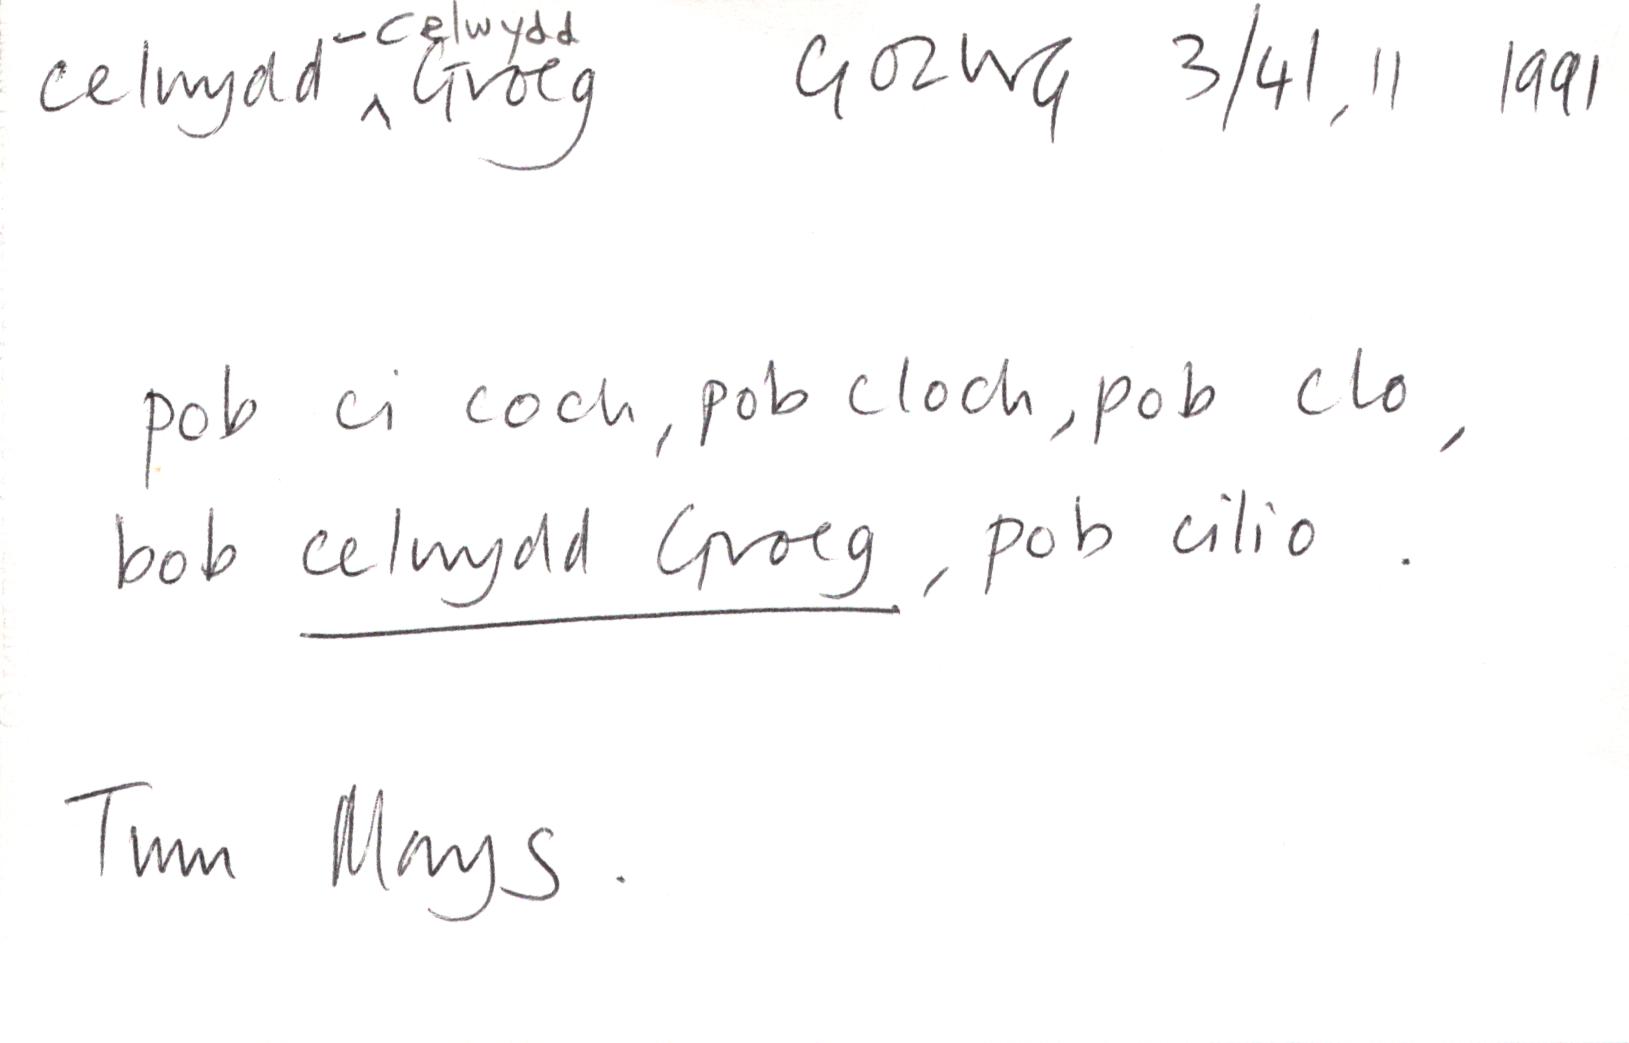 celwydd ^ - celwydd Groeg GOLWG 3/41, 11 1991
pob ci coch, pob cloch, pob clo,
bob celwydd Groeg, pob cilio.
Twm Morys.